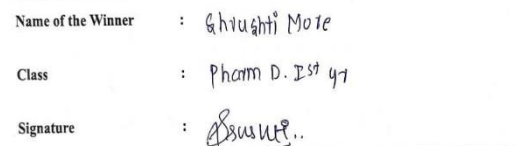 Name of the Winner : Shrushti More
Class : Pharm D. Ist yr
Signature :